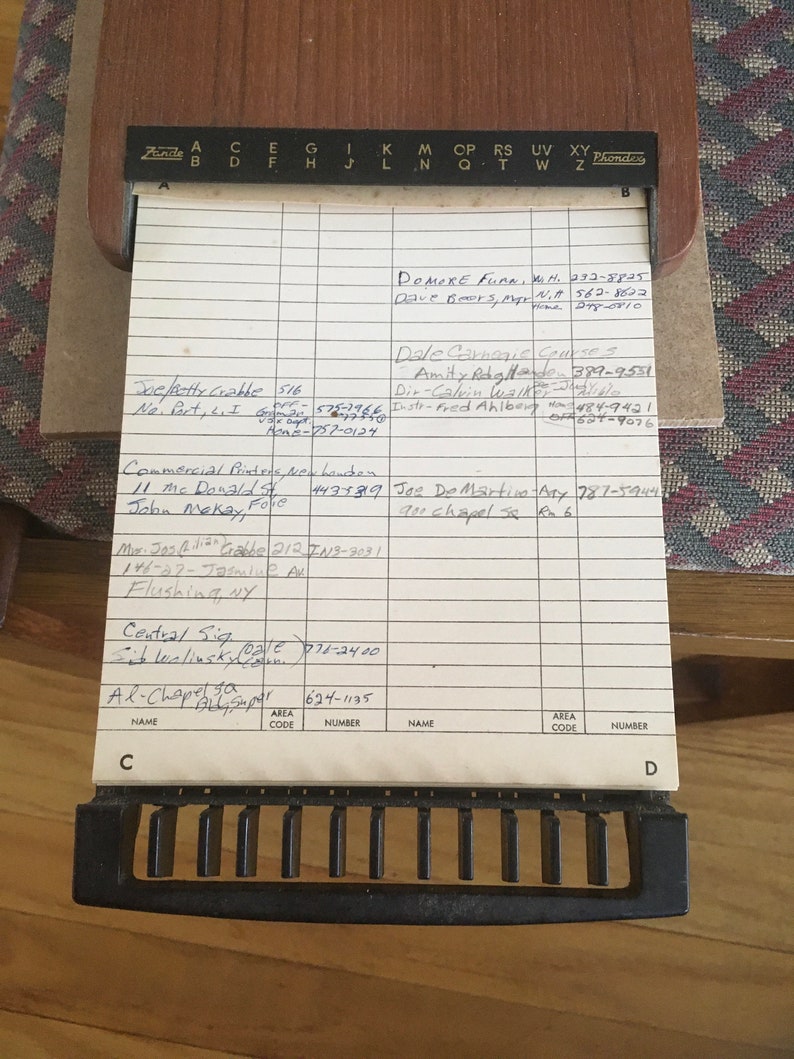 Zande A C E G I K M OP RS UV XY Phondex
B D F H J L N Q T W Z
A B
Joe/Betty Crabbe 516
No. Port, L.I OFF- 575-7966
Home- 757-0124
Commercial Printers, New London
11 McDonald St, 443-5319
John McKay,
Mrs. Jos (Lilian) Crabbe 212 IN3-3031
146-27- Jasmine Av
Flushing, NY
Central Sig
Sib Wolinsky (Dale Carn.) 776-2400
Al-Chapel Sq Bldg Super 624-1135
NAME AREA CODE NUMBER
C
DOMORE FURN, W.H. 232-8825
Dave Beers, Mgr N.H 562-8622
Home 248-6810
Dale Carnegie Courses
Amity Rdg Hamden 389-9551
Dir-Calvin Walker
Instr- Fred Ahlberg Home 484-9421
OFF 624-9076
Joe DeMartino- Agy 787-5944
900 Chapel Sq Rm 6
NAME AREA CODE NUMBER
D